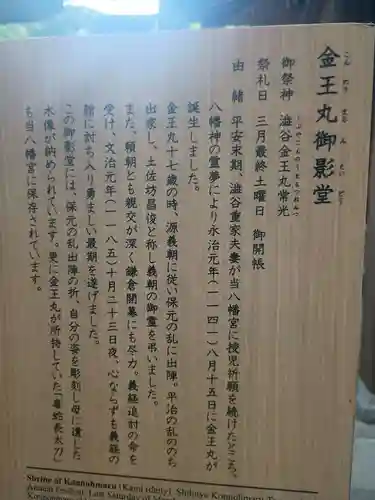 金王丸御影堂
こんのうまるみえいどう
御祭神　澁谷金王丸常光
祭礼日　三月最終土曜日　御開帳
由　緒　平安末期、澁谷重家夫妻が当八幡宮に授児祈願を続けたところ、
八幡神の霊夢により永治元年（一一四一）八月十五日に金王丸が
誕生しました。
金王丸十七歳の時、源義朝に従い保元の乱に出陣。平治の乱ののち
出家し、土佐坊昌俊と称し義朝の御霊を弔いました。
また、頼朝とも親交が深く鎌倉開幕にも尽力。義経追討の命を
受け、文治元年（一一八五）十月二十三日夜、心ならずも義経の
館に討ち入り勇ましい最期を遂げました。
この御影堂には、保元の乱出陣の折、自分の姿を彫刻し母に遺した
木像が納められています。更に金王丸が所持していた「毒蛇長太刀」
も当八幡宮に保存されています。
Shrine of Konnohmaru (Kami (deity), Shibuya Konnohmaru T
Annual Festival, Last Saturday of